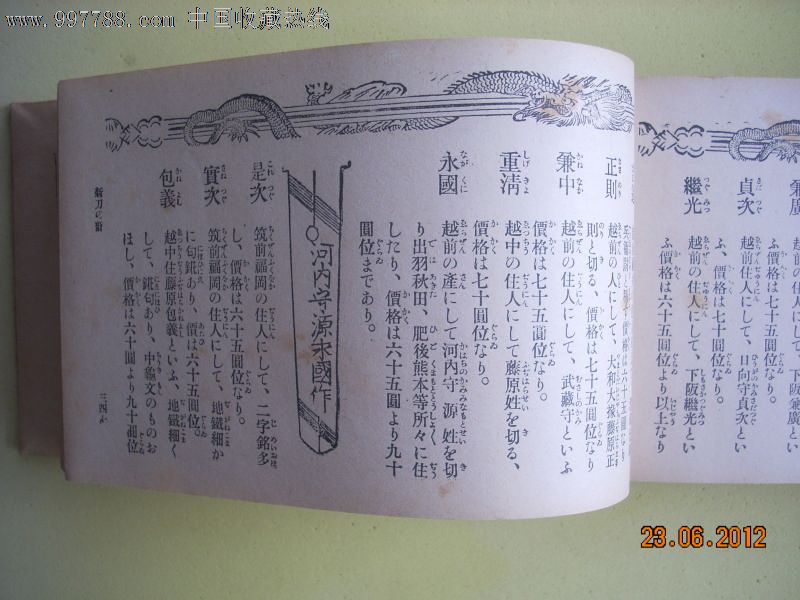 www.997788.com 中国收藏热线
兼廣
貞次 越前の住人にして、日向守貞次とい
ふ、價格は七十圓位なり。
繼光 越前の住人にして、下阪繼光とい
ふ價格は六十五圓より以上なり
正則 越前の人にして、大和大掾藤原正
則と切る、價格は七十五圓位なり
兼中 越前の住人にして、武藏守といふ
價格は七十五圓位なり。
重清 越中の住人にして藤原姓を切る、
價格は七十圓位なり。
永國 越前の産にして河内守源姓を切
り出羽秋田、肥後熊本等所々に住
したり、價格は六十五圓より九十
圓位まであり。
河内守源永國作
是次 筑前福岡の住人にして、二字銘多
し、價格は六十五圓位なり。
實次 筑前福岡の住人にして、地鐵細か
に匂錵あり、價は六十五圓位。
包義 越中住藤原包義といふ、地鐵細く
して、錵匂あり、中龜文のものお
ほし、價格は六十圓より九十圓位
新刀の部
23.06.2012